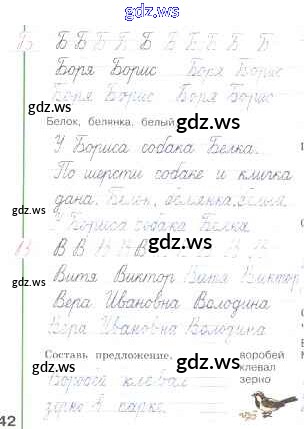 gdz.ws
Б Б Б Б Б Б Б Б Б Б Б
Боря Борис Боря Борис
Боря Борис Боря Борис
gdz.ws gdz.ws
Белок, белянка, белый
У Бориса собака Белка.
По шерсти собаке и кличка
дана. Белок, белянка, белый
У Бориса собака Белка
gdz.ws gdz.ws
В В В В В
Витя Виктор Витя Виктор
Вера Ивановна Володина
Вера Ивановна Володина
Составь предложение. воробей
gdz.ws клевал
Воробей клевал зерно
зерно в парке.
42 gdz.ws